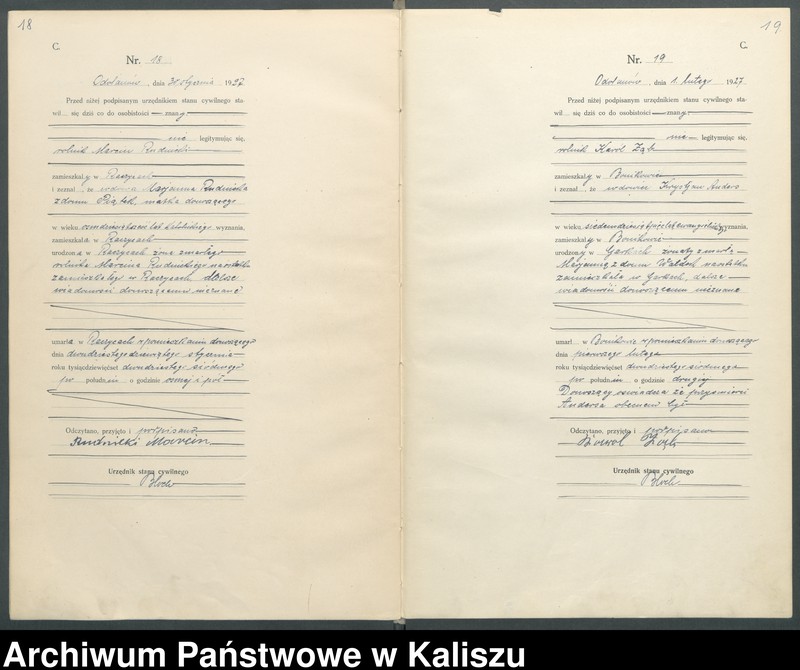 18
C.
Nr. 18
Odolanów, dnia 31 stycznia 1927
Przed niżej podpisanym urzędnikiem stanu cywilnego sta-
wił się dziś co do osobistości znany
nie legitymując się,
rolnik Marcin Rudnicki
zamieszkały w Raczycach
i zeznał, że wdowa Marjanna Rudnicka
z domu Piątek, matka donoszącego
w wieku osmdziesiąt lat katolickiego wyznania,
zamieszkała w Raczycach
urodzona w Raczycach żona zmarłego
rolnika Marcina Rudnickiego
zamieszkałego w Raczycach dalsze
wiadomości donoszącemu nieznane
umarła w Raczycach w pomieszkaniu donoszącego
dnia dwudziestego dziewiątego stycznia
roku tysiącdziewięćset dwudziestego siódmego
po południu o godzinie ósmej i pół
Odczytano, przyjęto i podpisano
Rudnicki Marcin
Urzędnik stanu cywilnego
19
C.
Nr. 19
Odolanów, dnia 1. lutego 1927
Przed niżej podpisanym urzędnikiem stanu cywilnego sta-
wił się dziś co do osobistości znany
nie legitymując się,
rolnik Karol Ząb
zamieszkały w Bonikowie
i zeznał, że wdowiec Krystjan Anders
w wieku siedemdziesiąt pięć lat ewangelickiego wyznania,
zamieszkały w Bonikowie
urodzony w żonaty z zmarłą
Marjanną z domu
zamieszkała w dalsze
wiadomości donoszącemu nieznane
umarł w Bonikowie w pomieszkaniu donoszącego
dnia pierwszego lutego
roku tysiącdziewięćset dwudziestego siódmego
po południu o godzinie drugiej
Donoszący oświadcza że przy śmierci
Andersa obecnem był
Odczytano, przyjęto i podpisano
Karol Ząb
Urzędnik stanu cywilnego
Archiwum Państwowe w Kaliszu